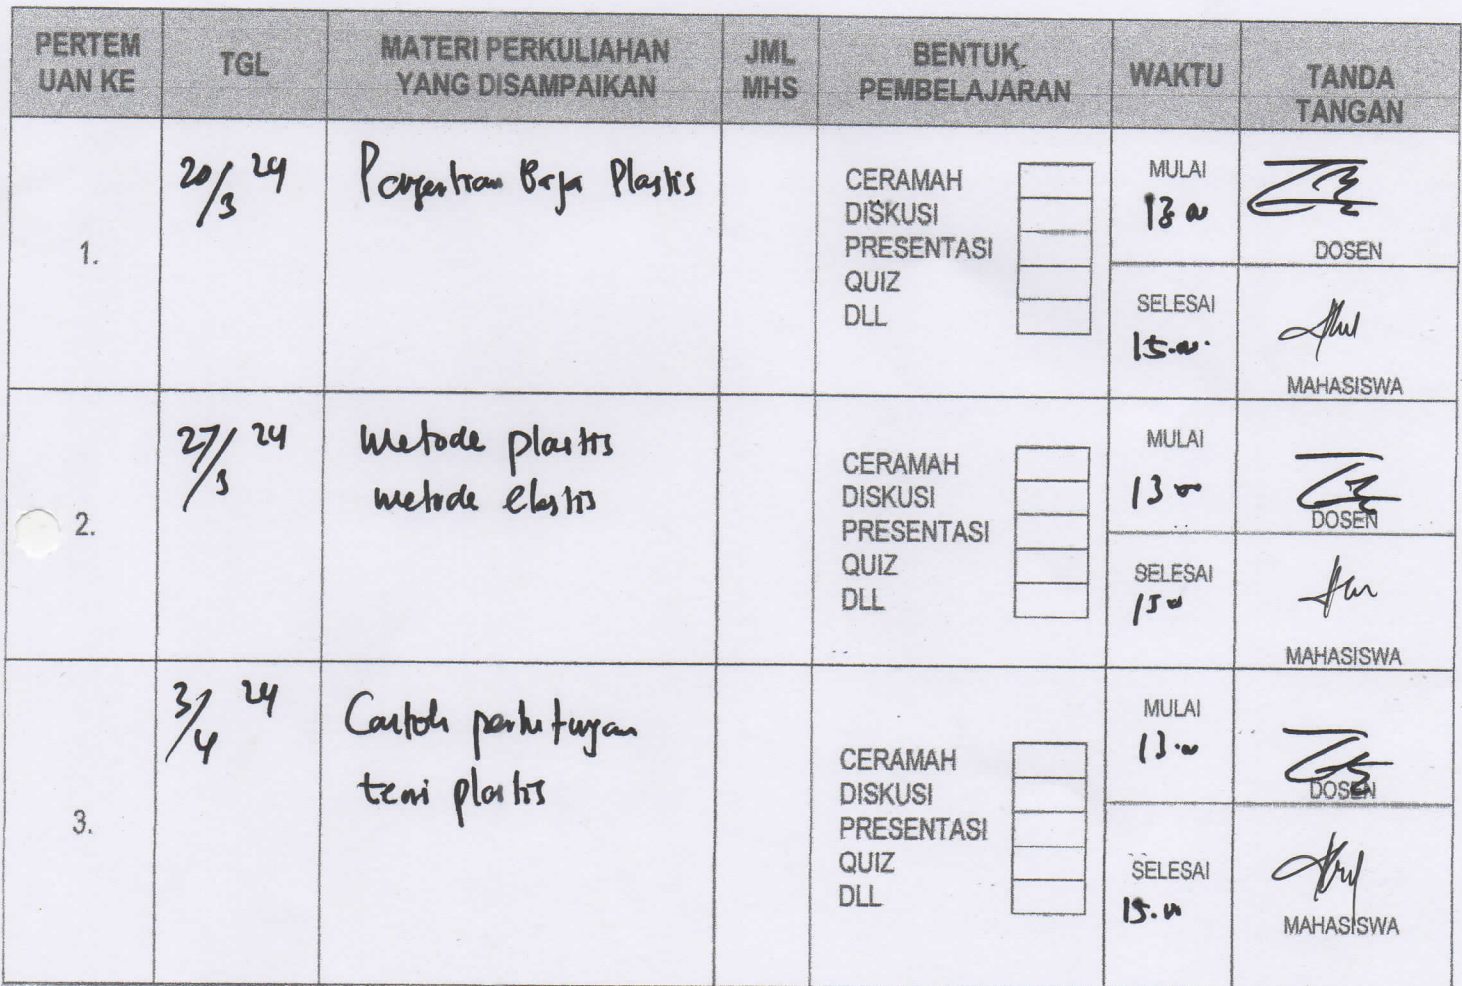 PERTEM
UAN KE
TGL
MATERI PERKULIAHAN
YANG DISAMPAIKAN
JML
MHS
BENTUK
PEMBELAJARAN
WAKTU
TANDA
TANGAN
1.
20/3 24
Pengertian Baja Plastis
CERAMAH
DISKUSI
PRESENTASI
QUIZ
DLL
MULAI
13.00
DOSEN
SELESAI
15.00
MAHASISWA
2.
27/3 24
Metode plastis
metode elastis
CERAMAH
DISKUSI
PRESENTASI
QUIZ
DLL
MULAI
13 00
DOSEN
SELESAI
15 00
MAHASISWA
3.
3/4 24
Contoh perhitungan
teori plastis
CERAMAH
DISKUSI
PRESENTASI
QUIZ
DLL
MULAI
13.00
DOSEN
SELESAI
15.00
MAHASISWA